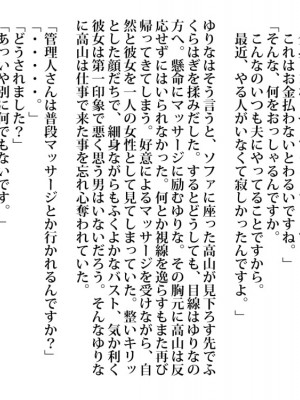 これはお金払わないとわるいですね。」
「そんな、何をおっしゃるんですか。
こんなのいつも夫にやってることですから。
最近、やる人がいなくて寂しかったんですよ。」
ゆりなはそう言うと、ソファに座った高山が見下ろす先でふ
くらはぎを揉みだした。するとどうしても、目線はゆりなの
方へ。懸命にマッサージに励むゆりな。その胸元に高山は反
応せずにはいられなかった。何とか視線を逸らすもまた再び
帰ってきてしまう。好意によるマッサージを受けながら、自
然と彼女を一人の女性として見てしまっていた。整いキリッ
とした顔だちで、細身ながらもふくよかなバスト、気か利く
彼女は第一印象で悪く思う男はいないだろう。そんなゆりな
に高山は仕事で来た事を忘れ心奪われていた。
「管理人さんは普段マッサージとか行かれるんですか？」
「・・・・。」
「どうされました？」
「あっいや別に何でもないです。」